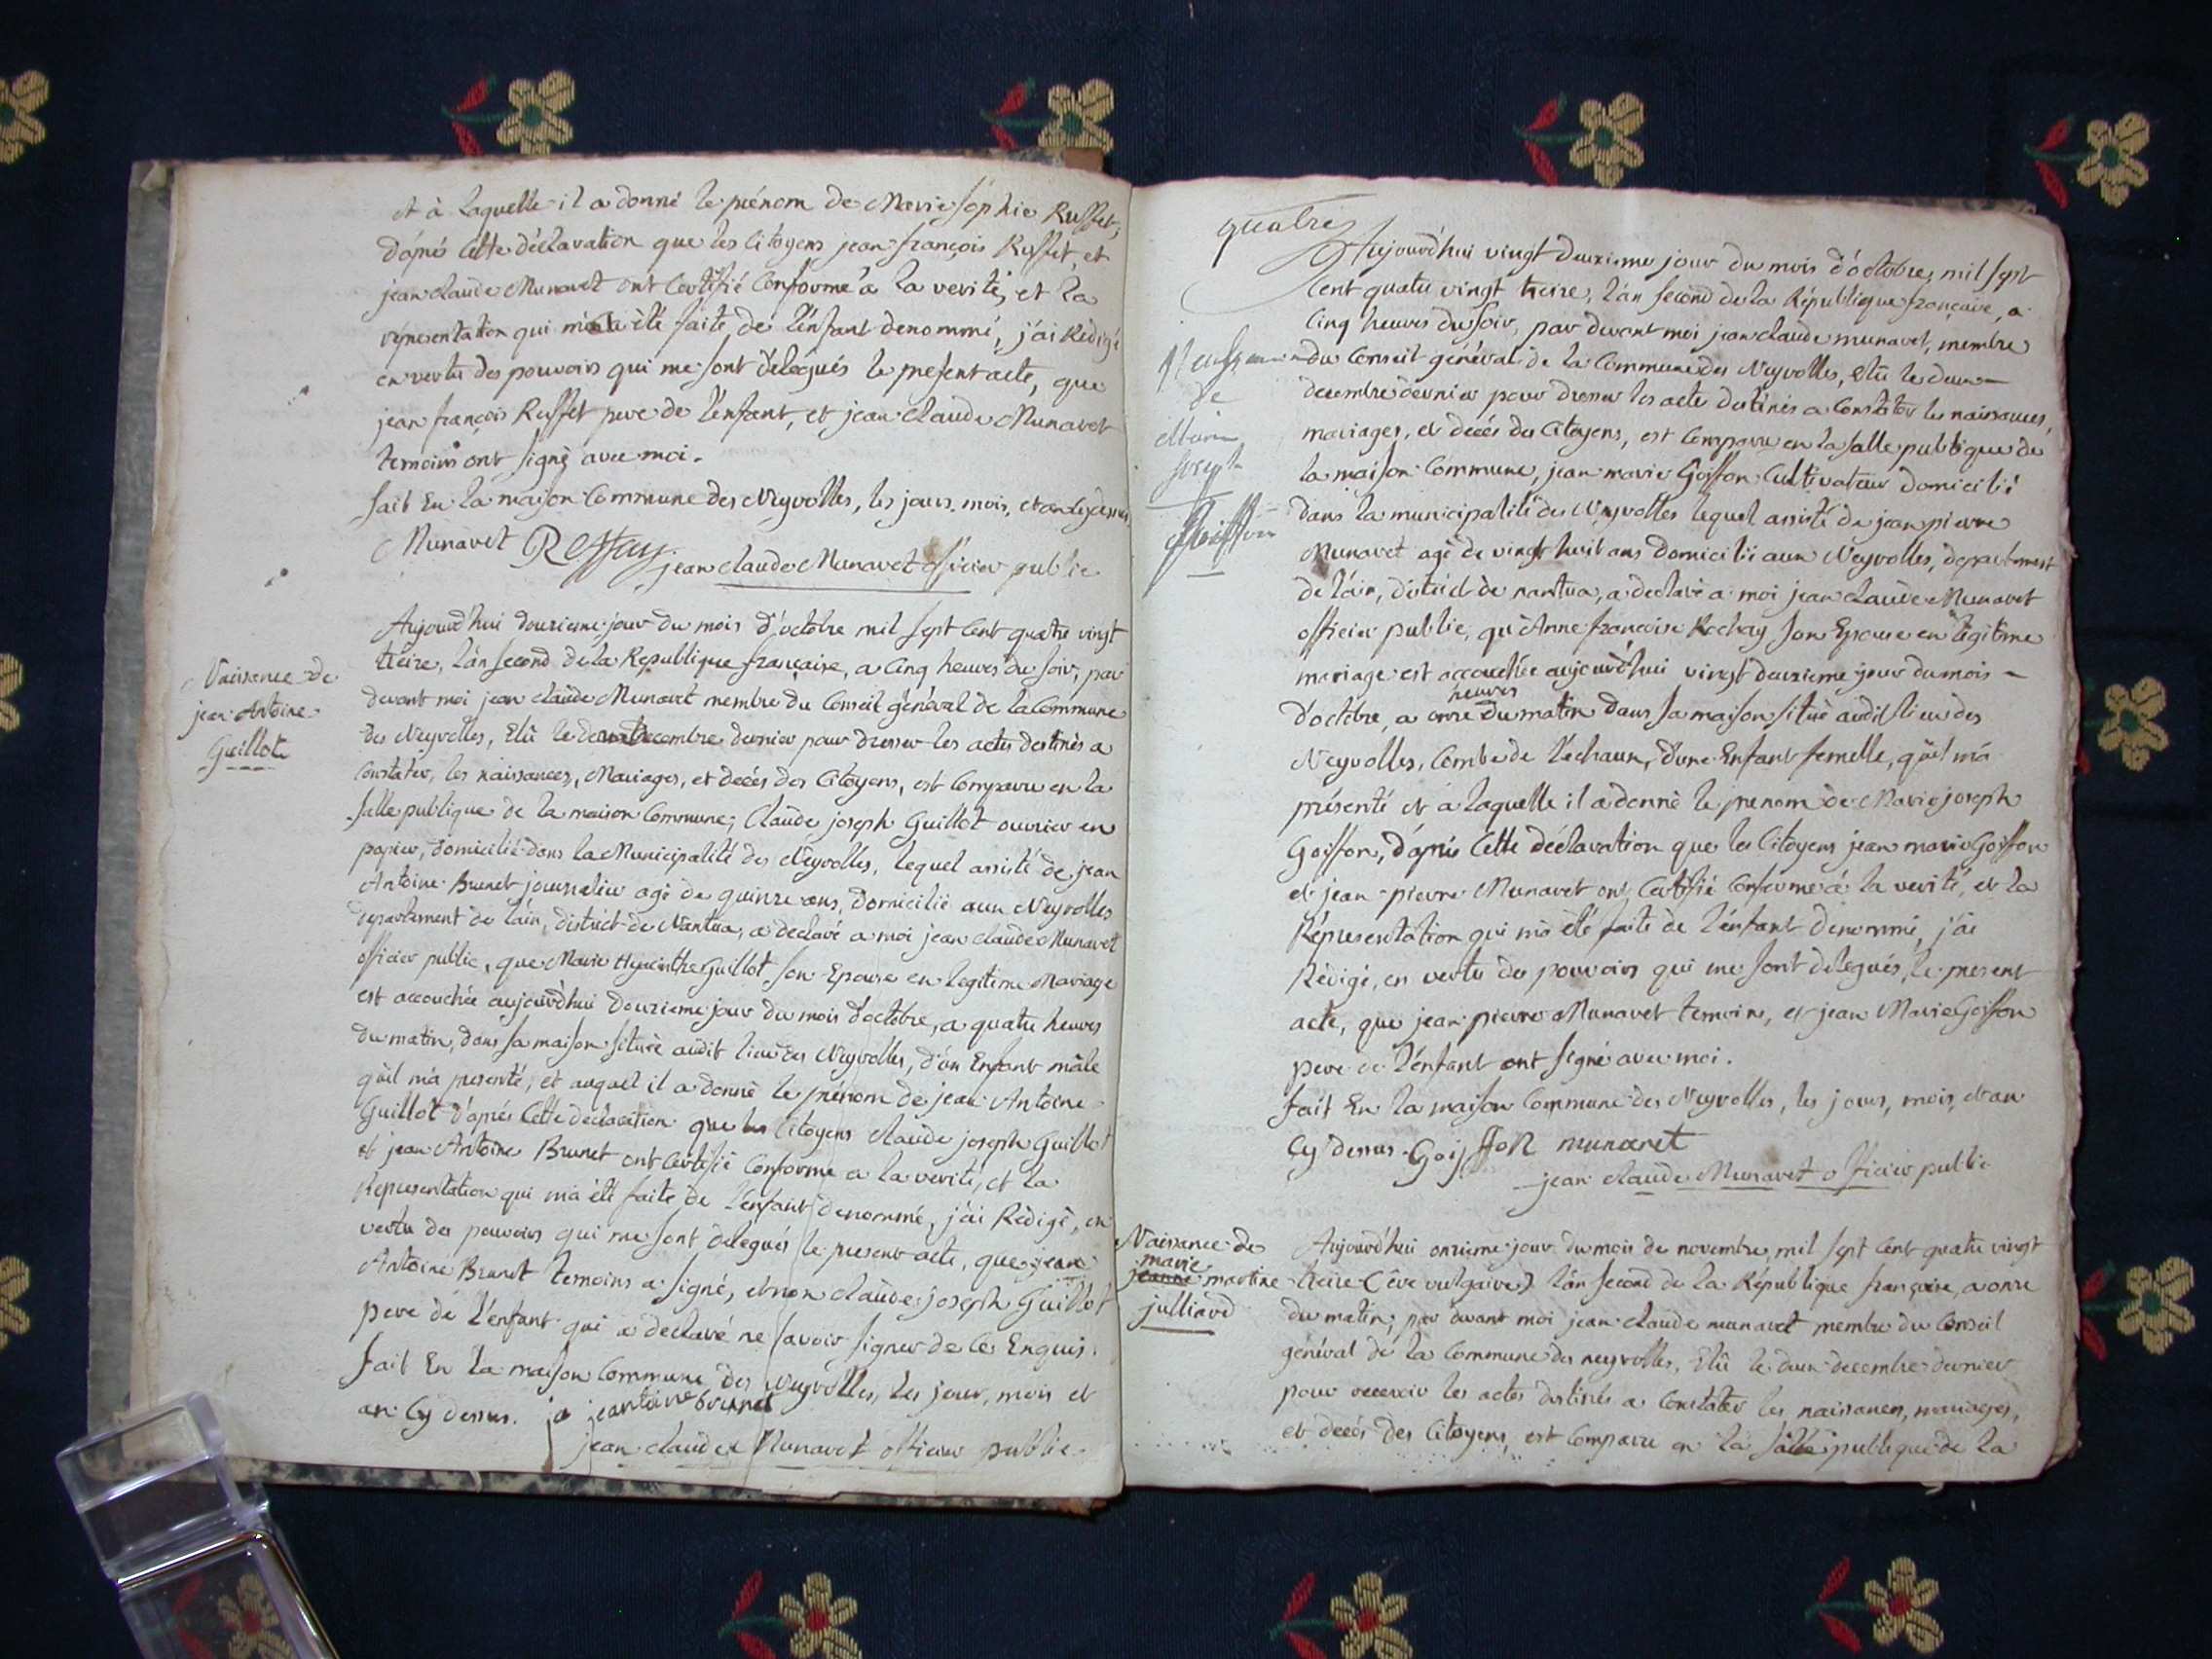 et à laquelle il a donné le prénom de Marie Sophie Ruffet,
d'aprés cette déclaration que les Citoyens jean françois Ruffet, et
jean claude Munavet ont Certifié Conforme a la verité, et la
répresentation qui m'a été faite de l'énfant denommé, j'ai Rédigé
en vertu des pouvoirs qui me sont délégués le present acte, que
jean françois Ruffet pere de l'énfant, et jean claude Munavet
temoins ont signé avec moi.
fait En la maison Commune des Neyrolles, les jours, mois, et an cydessus
Munavet
jean claude Munavet officier public
Naissance de
jean Antoine
Guillot
Aujourd'hui douzieme jour du mois d'octobre mil sept cent quatre vingt
treize, l'an second de la Republique française, a cinq heures du soir, par
devant moi jean claude Munavet membre du Conseil général de la Commune
des Neyrolles, Elû le deux decembre dernier pour dresser les actes destinés a
Constater, les naissances, Mariages, et decés des Citoyens, est Comparu en la
salle publique de la maison Commune; Claude joseph Guillot ouvrier en
papier, domicilié dans la Municipalité des Neyrolles, lequel assisté de jean
Antoine Brunet journalier agé de quinze ans, domicilié aux Neyrolles
departement de l'ain, district de Nantua, a declaré a moi jean claude Munavet
officier public, que Marie Hyacinthe Guillot son Epouse en legitime Mariage
est accouchée aujourd'hui douzieme jour du mois d'octobre, a quatre heures
du matin, dans sa maison située audit lieu des Neyrolles, d'un Enfant mâle
qu'il m'a presenté, et auquel il a donné le prénom de jean Antoine
Guillot d'aprés Cette declaration que les Citoyens claude joseph Guillot
et jean Antoine Brunet ont Certifié Conforme a la verité, et la
Representation qui m'a été faite de l'enfant denommé, j'ai Rédigé, en
vertu des pouvoirs qui me sont delegués le present acte, que jean
Antoine Brunet temoins a signé, et non claude joseph Guillot
pere de l'enfant qui a declaré ne savoir signer de ce Enquis.
fait En la maison Commune des Neyrolles, les jour, mois et
an Cy dessus. jantoine brunet
jean claude Munavet officier public
quatre
Aujourd'hui vingt deuxieme jour du mois d'octobre, mil sept
Cent quatre vingt treize, l'an second de la Républigue françaisse, a
Cinq heures du soir, par devant moi jean claude munavet, membre
du Conseil général de la Commune des Neyrolles, Elû le deux
decembre dernier pour dresser les acte destinés a Constater les naissances,
mariages, et decés des Citoyens, est Comparu en la salle publique de
la maison Commune, jean marie Goiffon Cultivateur domicilié
dans la municipalité des Neyrolles lequel assisté de jean pierre
Munavet agé de vingt huit ans domicilié aux Neyrolles, departement
de l'ain, district de nantua, a declaré a moi jean claude Munavet
officier public, qu'Anne francoise Rochay son Epouse en legitime
mariage est accouchée aujourd'hui vingt deuxieme jour du mois
heures
d'octobre, a onze du matin dans sa maison située audit lieu des
Neyrolles, Combe de Lechaux, d'une Enfant femelle, qu'il m'a
présenté et a laquelle il a donné le prenom de Marie joseph
Goiffon, d'aprés Cette déclaration que les Citoyens jean marie Goiffon
et jean pierre Munavet ont Certifié Conforme a la verité, et la
Réprésentation qui m'a été faite de l'énfant denommé, j'ai
Rédigé, en vertu des pouvoirs qui me sont delegués, le present
acte, que jean pierre Munavet temoin, et jean Marie Goiffon
pere de l'énfant ont signé avec moi.
fait En la maison Commune des Neyrolles, les jours, mois, et an
Cy dessus. Goiffon munaret
jean claude Munavet officier public
de
Marie
Joseph
Goiffon
Naissance de
marie
jeanne martine
julliard
Aujourd'hui onzieme jour du mois de novembre, mil sept Cent quatre vingt
treize (ére vulgaire) l'an second de la République française, a onze
du matin, par devant moi jean claude munavet membre du Conseil
général de la Commune des neyrolles, Elû le deux decembre dernier
pour recevoir les actes destinés a Constater les naissances, mariages,
et decés des Citoyens, est Comparu en la salle publique de la